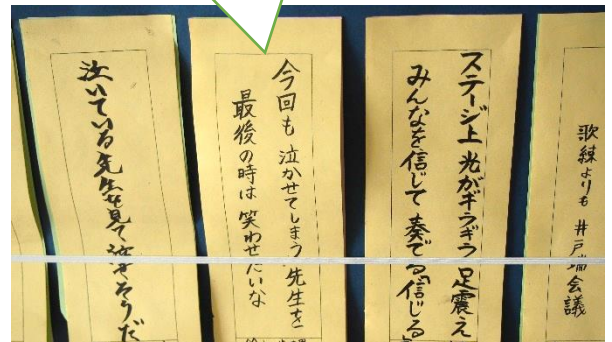 歌練よりも 井戸端会議
ステージ上 光がギラギラ 足震え
みんなを信じて 奏でる「信じる」
今回も 泣かせてしまう 先生を
最後の時は 笑わせたいな
泣いている先生を見て泣きそうだ